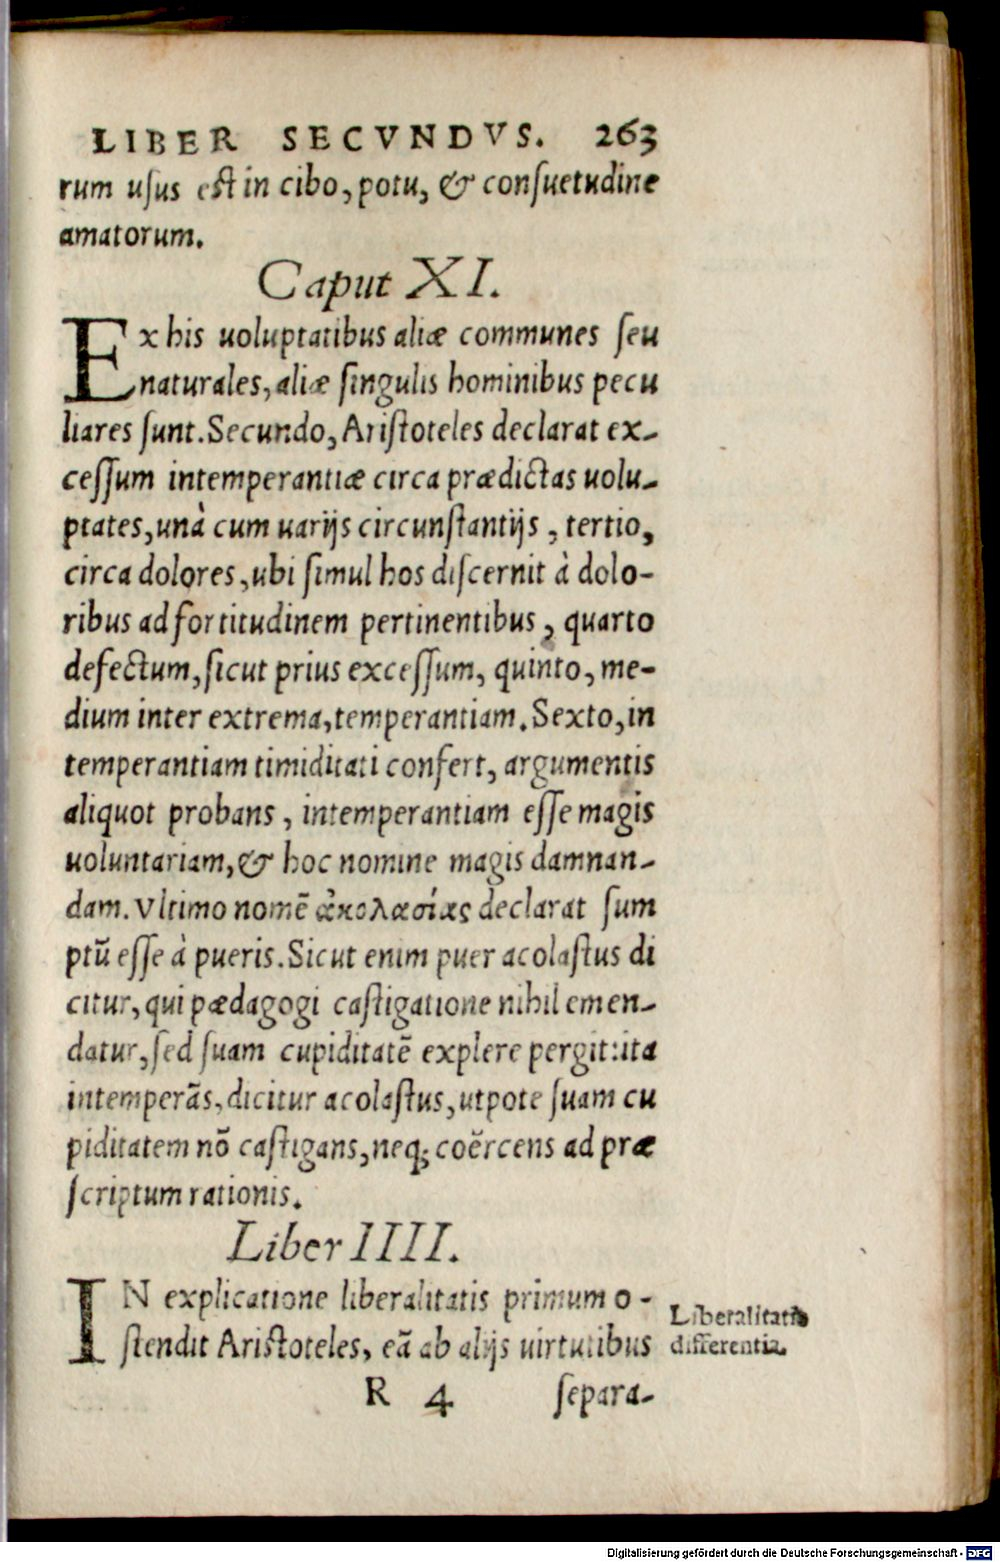 LIBER SECVNDVS. 263
rum uſus eſt in cibo, potu, & conſuetudine
amatorum.
Caput XI.
Ex his uoluptatibus aliæ communes ſeu
naturales, aliæ ſingulis hominibus pecu
liares ſunt. Secundo, Ariſtoteles declarat ex-
ceſſum intemperantiæ circa prædictas uolu-
ptates, unà cum uarijs circunſtantijs, tertio,
circa dolores, ubi ſimul hos diſcernit à dolo-
ribus ad fortitudinem pertinentibus, quarto
defectum, ſicut prius exceſſum, quinto, me-
dium inter extrema, temperantiam. Sexto, in
temperantiam timiditati confert, argumentis
aliquot probans, intemperantiam eſſe magis
uoluntariam, & hoc nomine magis damnan-
dam. Vltimo nomē ἀκολασίας declarat ſum
ptū eſſe à pueris. Sicut enim puer acolaſtus di
citur, qui pædagogi caſtigatione nihil emen-
datur, ſed ſuam cupiditatē explere pergit: ita
intemperās, dicitur acolaſtus, utpote ſuam cu
piditatem nō caſtigans, neq; coërcens ad præ
ſcriptum rationis.
Liber IIII.
IN explicatione liberalitatis primum o-
ſtendit Ariſtoteles, eā ab alijs uirtutibus
Liberalitatis
differentia.
R 4 ſepara-
Digitalisierung gefördert durch die Deutsche Forschungsgemeinschaft - DFG